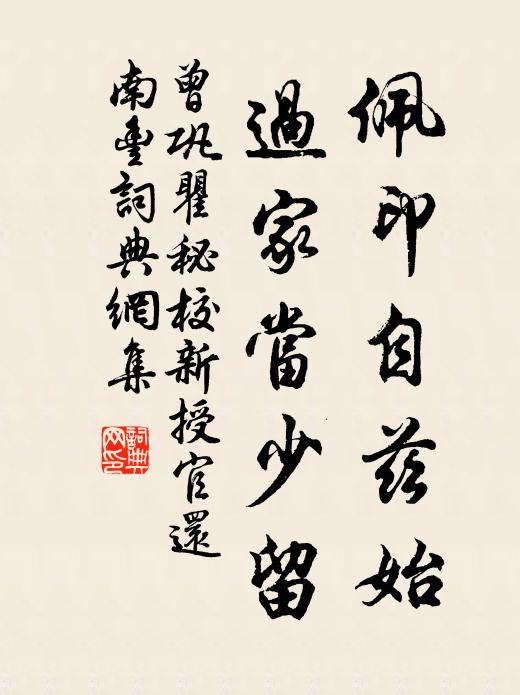 佩印自茲始
過家當少留
曾巩瞿秘校新授官還
南豐詞典網集
詞典網印